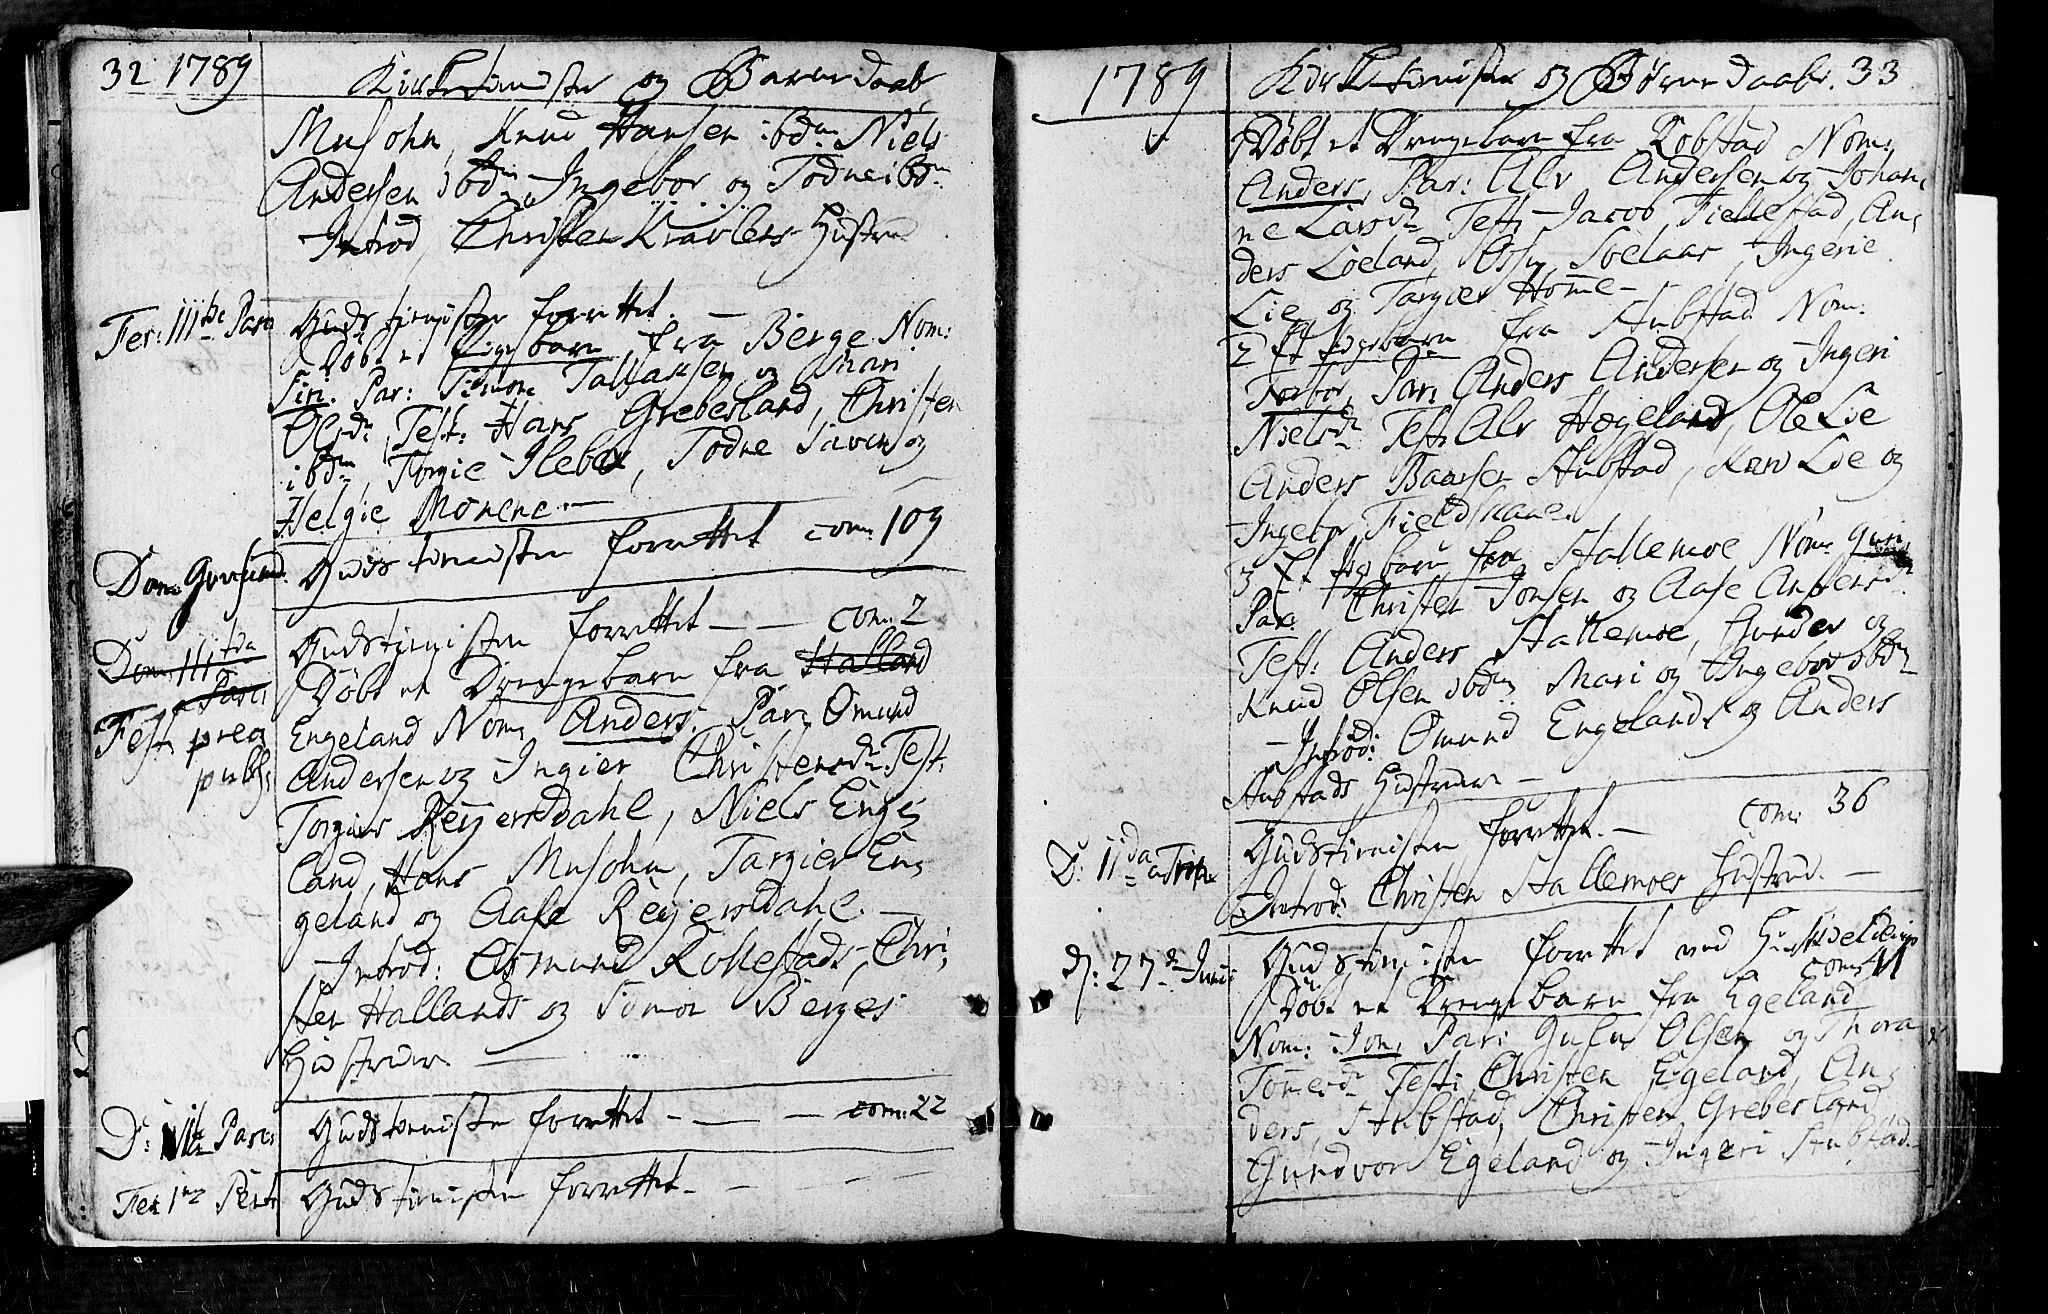 32 1789
Kirketieniste og Børnedaab
Musohn, Knud Hansen ibdm Niels
Andersen ibdm Ingebor og Todne ibdm
Introd Christen Kravlers Hustru
Fer: IIItie Pasc
Guds tieniste forrettet. —
Døbt et Pigebarn fra Berge Nom:
Siri. Par: Simon Tallaksen og Mari
Olsdr, Test: Hans Grebesland, Christen
ibdm, Torgie Ilebek, Todne og
Helgie Monene. —
Dom: Qvasimod.
Guds tienisten forrettet com: 109
Dom IIItia Pasc:
Fest prec publ:
Gudstienisten forrettet — — com: 2
Døbt et Drengebarn fra Halland
Engeland Nom: Anders. Par: Omund
Andersen og Ingier Christensdr: Test.
Torgius Reijersdahl, Niels Enge,
land, Hans Musohm, Targier En,
geland og Aase Reijersdahl. —
Introd: Osmund Rollestads, Chri,
sten Hallands og Simon Berges
Hustruer. —
D: Pasc:
Gudstieniste forrettet — — com: 22
Fer 1ma Pent
Gudstienisten forrettet. — —
1789
Kirketieniste og Børnedaab. 33
Døbt et Drengebarn fra Robstad Nom:
Anders, Par: Alv Andersen og Johan,
ne Larsdr Test: Jacob Fiellestad, An,
ders Loeland, Ingerie
Lie og Targier Homme —
2 Et Pigebarn fra Stubstad Nom:
Torbor, Par: Anders Andersen og Ingeri
Nielsdr Test: Alv Hægeland, Ole Lie
Anders Baarsen Stubstad, Kari Lie og
Ingebor
3 Et Pigebarn fra Stallemoe Nom: Guri
Par: Christen Jonsen og Aase Andersdr
Test: Anders Stallemoe, Gunder og
Knud Olsen ibdm Mari og Ingebor ibdm
Introd: Omund Engelands og Anders
Stubstads Hustruer —
D: IIda Trin
Gudstienisten forrettet. — com: 36
Introd: Christen Stallemoes Hustrue. —
d: 27de Junii
Gudstienisten forrettet ved Hr
com: 41
Døbt et Drengebarn fra Egeland
Nom: Jon, Par: Olsen og Thora
Tommesdr Test: Christen Egeland, An,
ders, Stubstad, Christen Grebesland
Gundvor Egeland og Ingeri Stubstad.